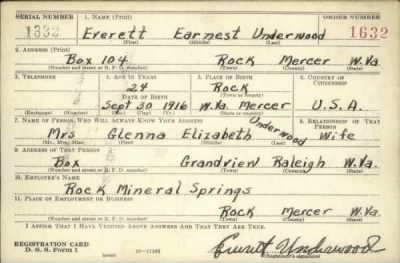 SERIAL NUMBER 1. NAME (Print) ORDER NUMBER
1332 Everett Earnest Underwood 1632
(First) (Middle) (Last)
2. ADDRESS (Print)
Box 104 Rock Mercer W.Va.
(Number and street or R. F. D. number) (Town) (County) (State)
3. TELEPHONE 4. AGE IN YEARS 5. PLACE OF BIRTH 6. COUNTRY OF CITIZENSHIP
24 Rock
DATE OF BIRTH (Town or county)
Sept 30 1916 W.Va. Mercer U.S.A.
(Exchange) (Number) (Mo.) (Day) (Yr.) (State or country)
7. NAME OF PERSON WHO WILL ALWAYS KNOW YOUR ADDRESS 8. RELATIONSHIP OF THAT PERSON
Mrs Glenna Elizabeth Underwood Wife
(Mr., Mrs., Miss) (First) (Middle) (Last)
9. ADDRESS OF THAT PERSON
Box Grandview Raleigh W.Va.
(Number and street or R. F. D. number) (Town) (County) (State)
10. EMPLOYER'S NAME
Rock Mineral Springs
11. PLACE OF EMPLOYMENT OR BUSINESS
Rock Mercer W.Va.
(Number and street or R. F. D. number) (Town) (County) (State)
I AFFIRM THAT I HAVE VERIFIED ABOVE ANSWERS AND THAT THEY ARE TRUE.
REGISTRATION CARD
D. S. S. Form 1 (over) Everett Underwood
(Registrant's signature)